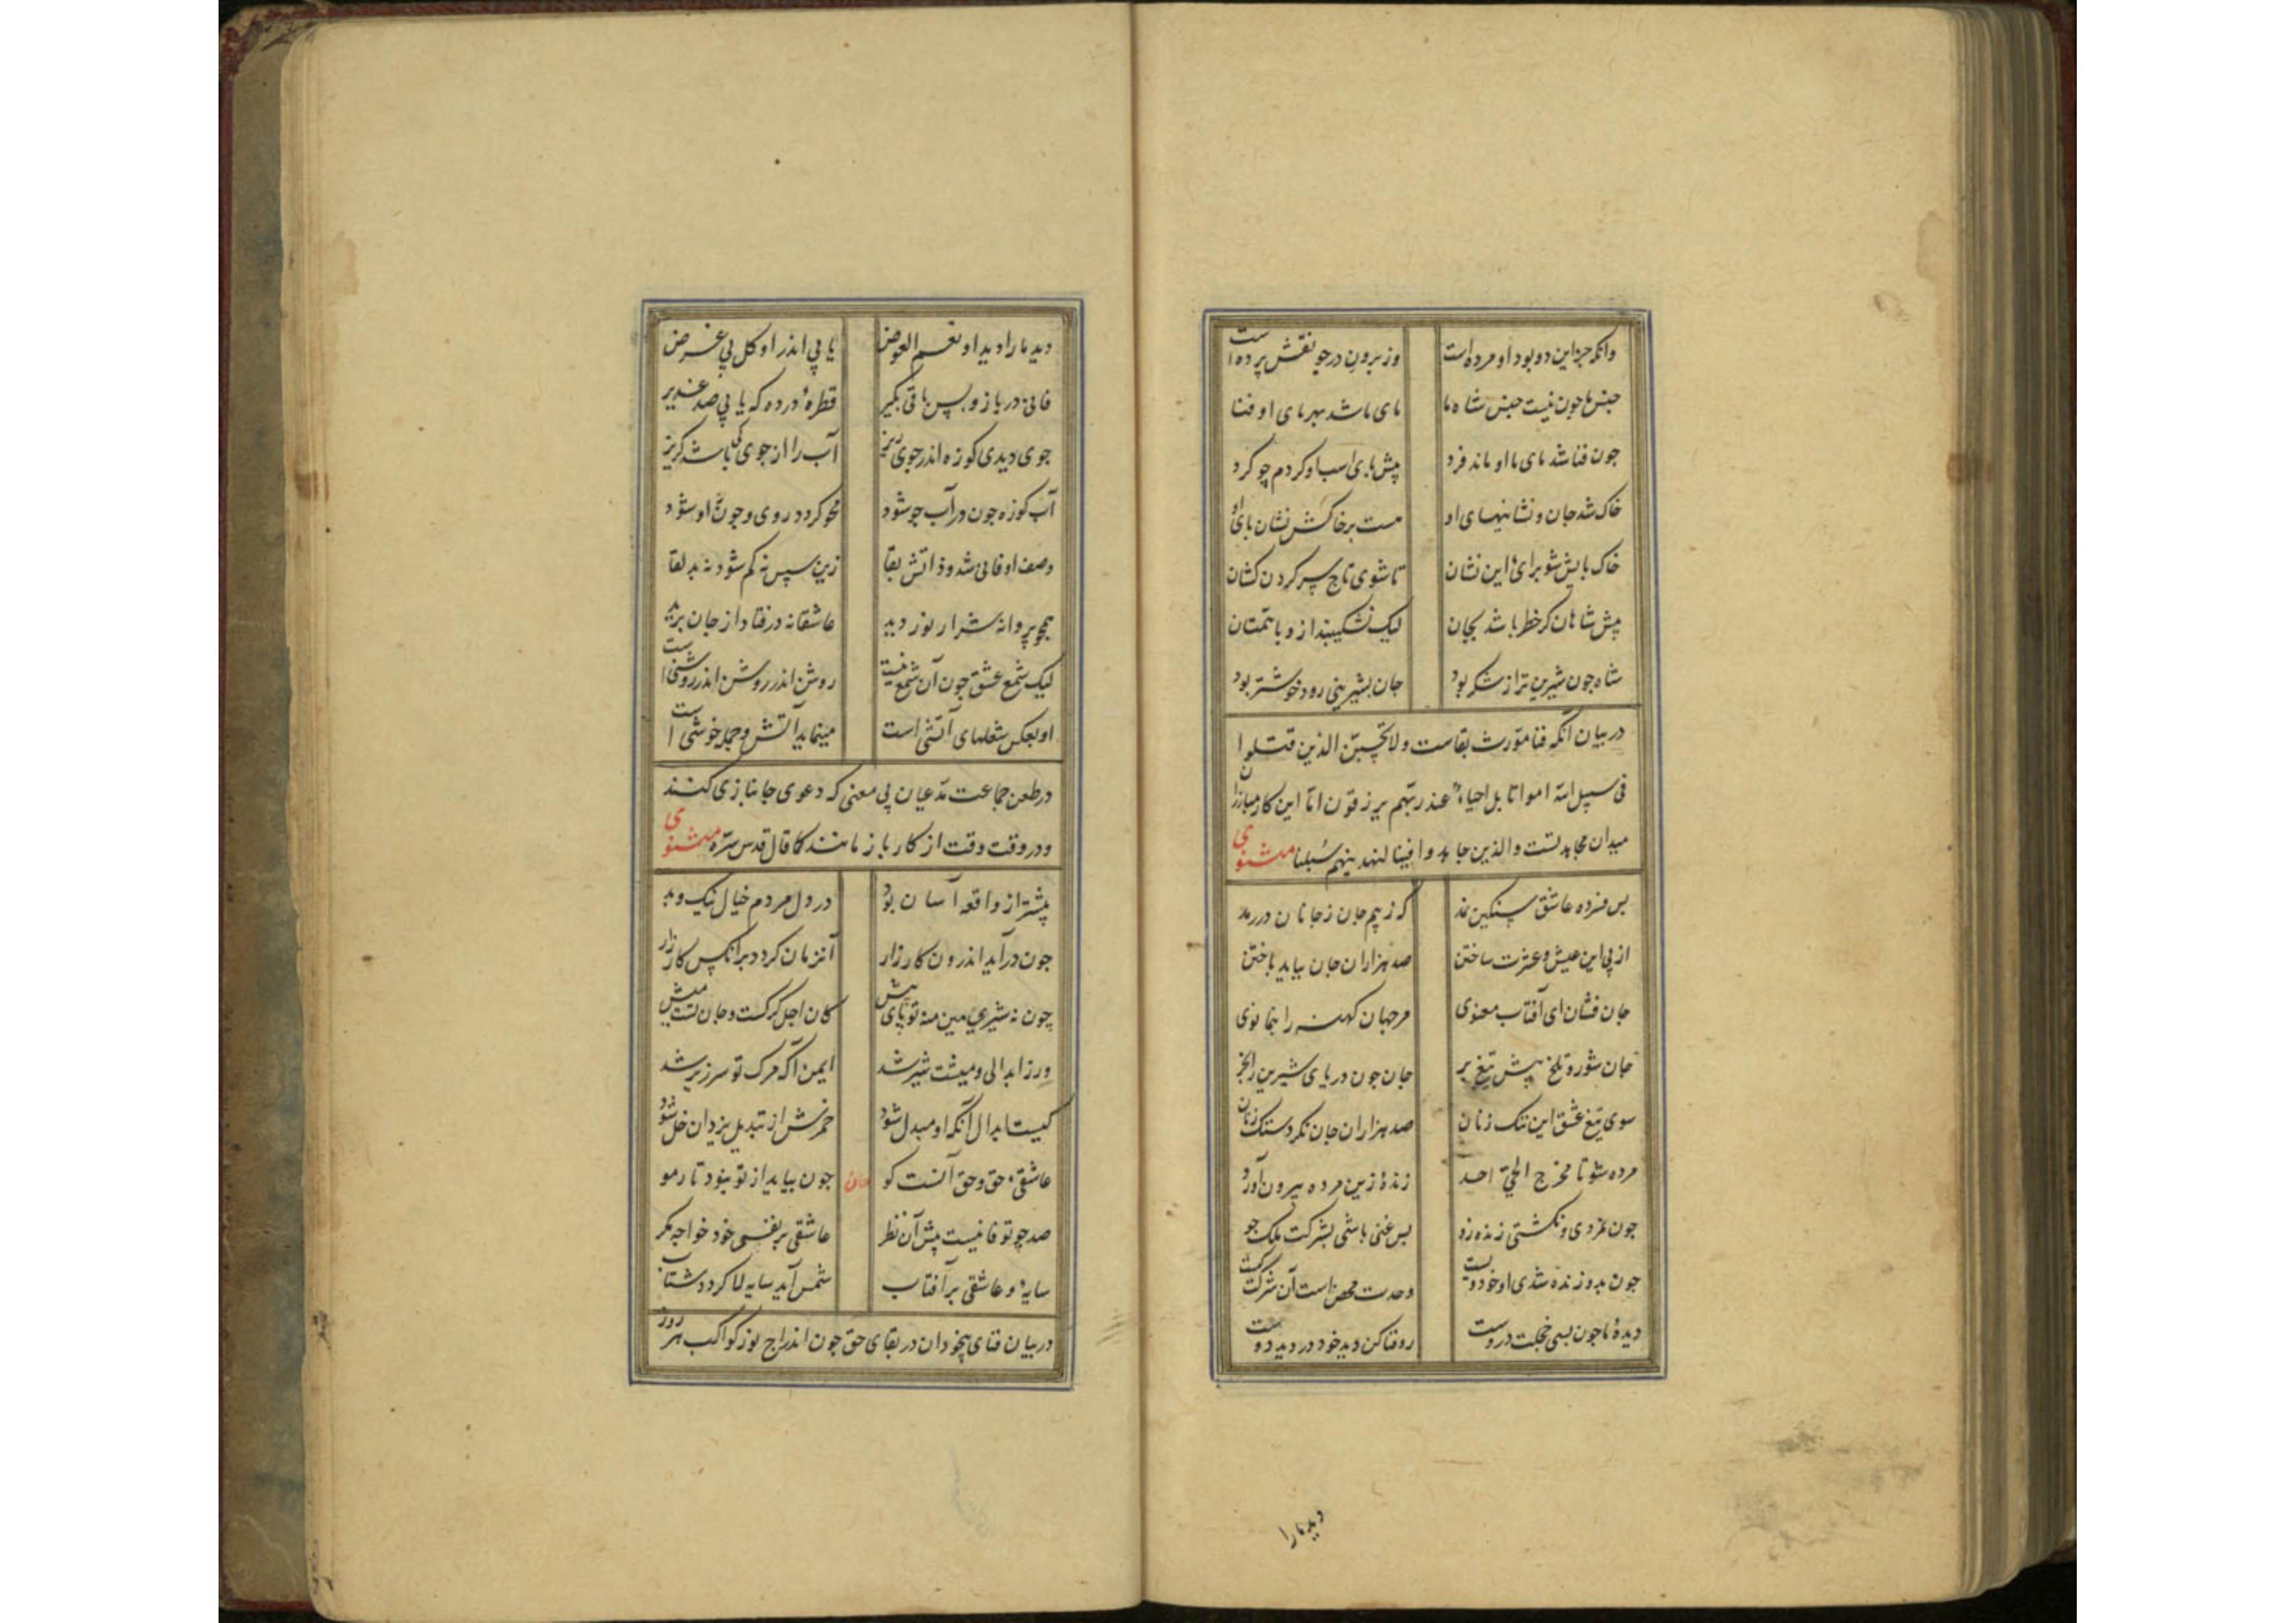 وانکه جز این دو بود او مرده است وز برون در جو نقش پرده است
جنس ما چون نیست جنس شاه ما مای ما شد بهر مای او فنا
چون فنا شد مای ما او ماند فرد پیش پای اسب او کردم چو کرد
خاک شد جان و نشانیهای او هست بر خاکش نشان پای او
خاک پایش شو برای این نشان تا شوی تاج سر کردن کشان
پیش شاهان کر خطر باشد بجان لیک نشکیبند ازو با همتان
شاه چون شیرین تر از شکر بود جان بشیرینی رود خوشتر بود
در بیان آنکه فنا مورث بقاست ولا تحسبن الذین قتلوا
فی سبیل الله امواتا بل احیاء عند ربهم یرزقون اما این کار مبارزان
میدان مجاهدتست والذین جاهدوا فینا لنهدینهم سبلنا مثنوی
بس فسرده عاشق سنکین نمد که ز بیم جان ز جانان در رمد
از پی این عیش و عشرت ساختن صد هزاران جان بباید باختن
جان فشان ای آفتاب معنوی مر جهان کهنه را بنما نوی
جان شور و تلخ پیش تیغ بر جان چون دریای شیرین را بخر
سوی تیغ عشق این ننک زنان صد هزاران جان نکر دستک زنان
مرده شو تا مخرج الحی احد زندهٔ زین مرده بیرون آورد
چون بمردی و نکشتی زنده زو بس غنی باشی بشرکت ملک جو
چون بدو زنده شدی او خود ویست وحدت محض است آن شرکت کیست
دیدهٔ ما چون بسی علتست دروست رو فنا کن دید خود در دید دوست
دید ما را
دید ما را دید او نعم العوض یابی اندر او کل بی غرض
فانی در باز و پس باقی بکیر قطرهٔ در ده که یابی صد غدیر
جوی دیدی کوزه اندر جوی ریز آب را از جوی کی باشد کریز
آب کوزه چون در آب جو شود محو کردد در وی و چون او شود
وصف او فانی شد و ذاتش بقا زین سپس نه کم شود نه بد لقا
همچو پروانه شرار نور دید عاشقانه در فتاد از جان برید
لیک شمع عشق چون آن شمع نیست روشن اندر روشن اندر روشنی است
او بعکس شعلهای آتشی است مینماید آتش و جمله خوشی است
در طعن جماعت مدعیان بی معنی که دعوی جانبازی کنند
و در وقت وقت از کار باز مانند کما قال قدس سره مثنوی
پیشتر از واقعه آسان بود در دل مردم خیال نیک و بد
چون در آید اندرون کارزار آنزمان کردد بر انکس کار زار
چون نه شیری هین منه تو پای پیش کان اجل کرکست و جان تست میش
ور ز ابدالی و میشت شیر شد ایمن آ که مرک تو سرزیر شد
کیست ابدال آنکه او مبدل شود خمرش از تبدیل یزدان خل شود
عاشقی حق و حق آنست کو جان چون بیاید از تو نبود تار مو
صد چو تو فانیست پیش آن نظر عاشقی بر نفی خود خواجه مکر
سایهٔ و عاشقی بر آفتاب شمس آید سایه لا کردد شتاب
در بیان فنای بیخودان در بقای حق چون اندراج نور کواکب هر روز